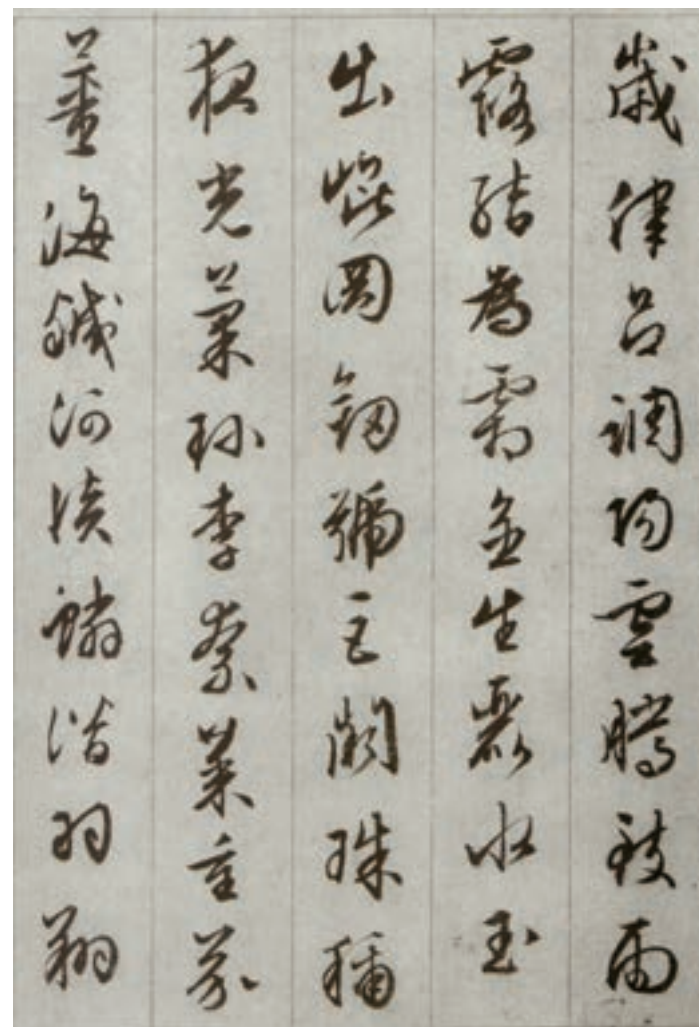 歲律呂調陽雲騰致雨
露結為霜金生麗水玉
出崑岡劍號巨闕珠稱
夜光菓珍李柰菜重芥
薑海鹹河淡鱗潛羽翔